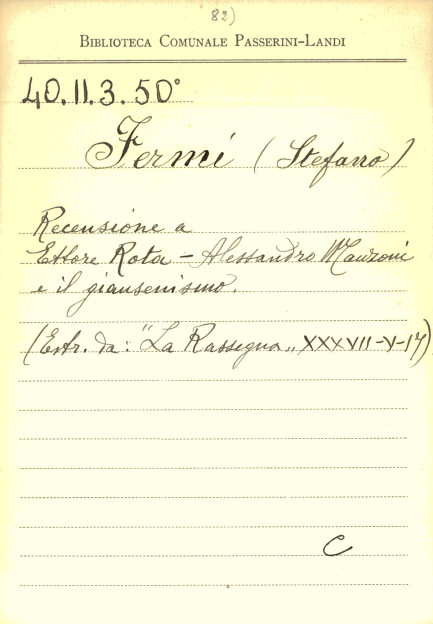 82)
BIBLIOTECA COMUNALE PASSERINI-LANDI
40.II.3.50°
Fermi (Stefano)
Recensione a
Ettore Rota - Alessandro Manzoni
e il giansenismo.
(Estr. da: "La Rassegna„ XXXVII-V-17)
C